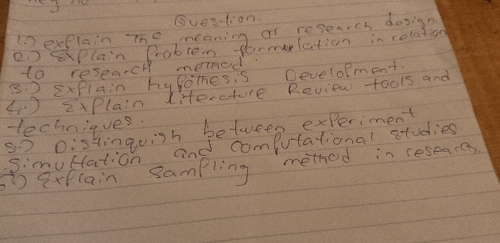 Question.
1.) explain the meaning of research design
2.) Explain Problem formulation in relation
to research method.
3.) Explain hypothesis Development.
4.) Explain literature Review tools and
techniques.
5.) Distinquish between experiment
Simultation and computational studies
6.) Explain Sampling method in research